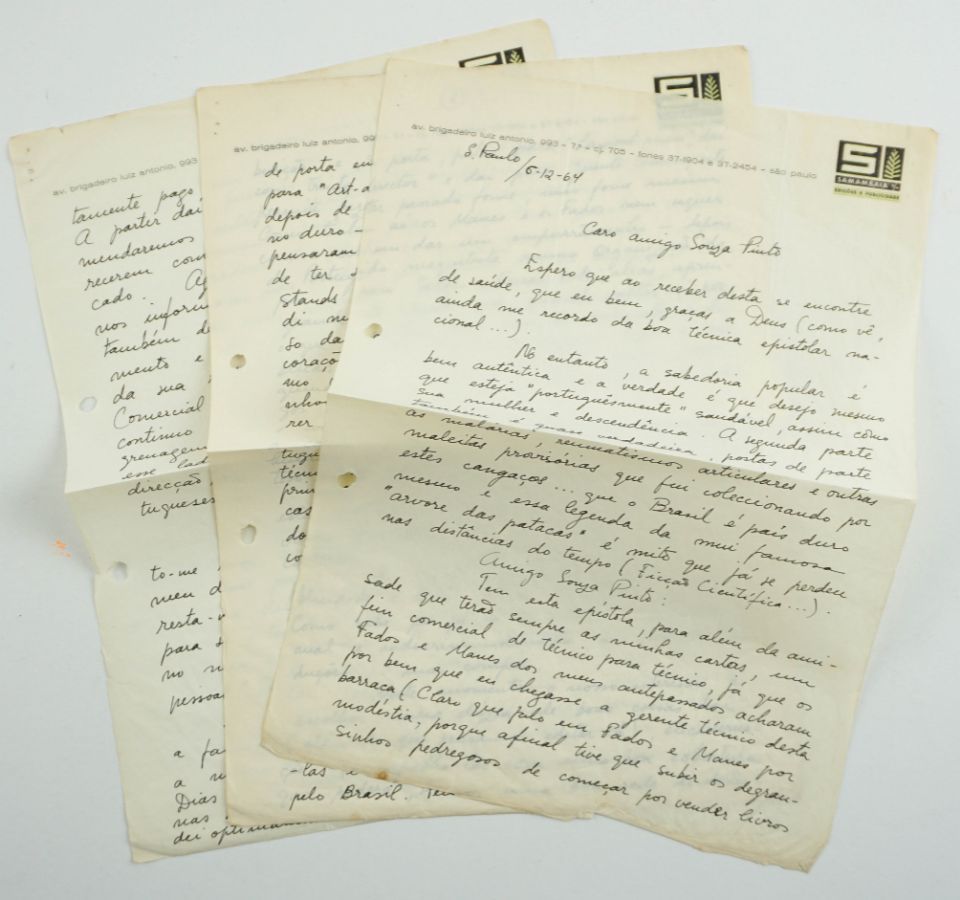 av. brigadeiro luiz antonio, 993
tamente pago
A partir daí
mendaremos
recerem com
cado. Ag
nos inform
também de
mento e
da sua
Comercial
continuo
grenagem
esse lad
direcção
tugueses
to-me
nem d
resta-
para s
no n
pessoa
a fa
a n
Dias
nas
dei optimam
av. brigadeiro luiz antonio, 99
de porta em
para "Art-a
depois de
no duro -
pensaram
de ter
Stands
di m
so da
coraçõ
mo
nho
rer
tugu
técni
prin
cas
do
co
-las e
pelo Brasil. Ten
av. brigadeiro luiz antonio, 993 - 7º - cj. 705 - fones 37-1904 e 37-2454 - são paulo
S
SAMAMBAIA S/A
EDIÇÕES E PUBLICIDADE
S. Paulo
/6-12-64
Caro amigo Souza Pinto
Espero que ao receber desta se encontre
de saúde, que eu bem, graças a Deus (como vê,
ainda me recordo da boa técnica epistolar na-
cional...).
No entanto, a sabedoria popular é
bem autêntica e a verdade é que desejo mesmo
que esteja "portuguêsmente" saudável, assim como
sua mulher e descendência. A segunda parte
também é quase verdadeira, postas de parte
as malárias, reumatismos articulares e outras
maleitas provisórias que fui coleccionando por
estes cangaços... que o Brasil é país duro
mesmo e essa legenda da mui famosa
"árvore das patacas" é mito que já se perdeu
nas distâncias do tempo (Ficção Científica...).
Amigo Souza Pinto:
Tem esta epístola, para além da ami-
sade que terão sempre as minhas cartas, um
fim comercial de técnico para técnico, já que os
Fados e Manes dos meus antepassados acharam
por bem que eu chegasse a gerente técnico desta
barraca (Claro que falo em Fados e Manes por
modéstia, porque afinal tive que subir os degrau-
sinhos pedregosos de começar por vender livros